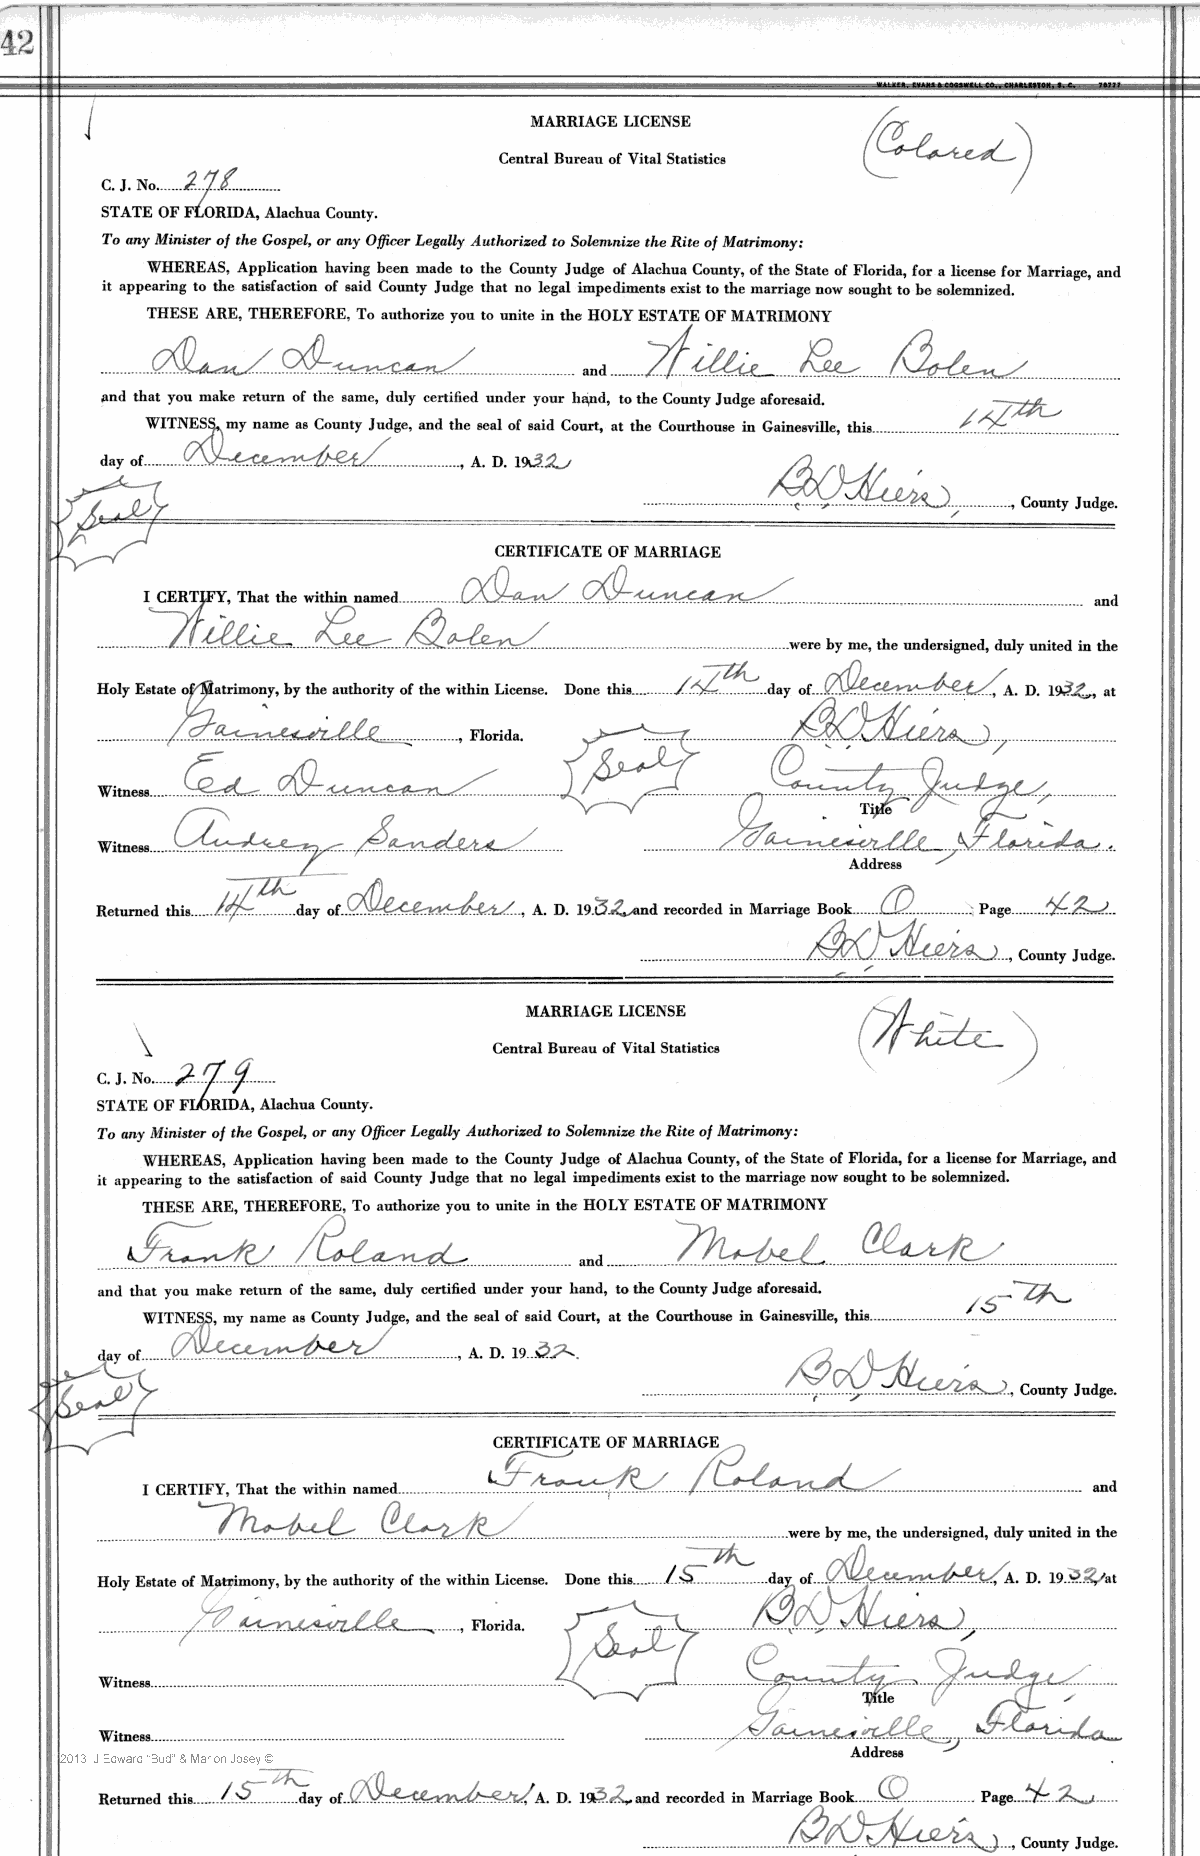 42
WALKER, EVANS & COGSWELL CO., CHARLESTON, S. C. 76777
MARRIAGE LICENSE
(Colored)
Central Bureau of Vital Statistics
C. J. No. 278
STATE OF FLORIDA, Alachua County.
To any Minister of the Gospel, or any Officer Legally Authorized to Solemnize the Rite of Matrimony:
WHEREAS, Application having been made to the County Judge of Alachua County, of the State of Florida, for a license for Marriage, and
it appearing to the satisfaction of said County Judge that no legal impediments exist to the marriage now sought to be solemnized.
THESE ARE, THEREFORE, To authorize you to unite in the HOLY ESTATE OF MATRIMONY
Dan Duncan and Willie Lee Bolen
and that you make return of the same, duly certified under your hand, to the County Judge aforesaid.
WITNESS, my name as County Judge, and the seal of said Court, at the Courthouse in Gainesville, this 14th
day of December, A. D. 1932
B D Hiers, County Judge.
Seal
CERTIFICATE OF MARRIAGE
I CERTIFY, That the within named Dan Duncan and
Willie Lee Bolen were by me, the undersigned, duly united in the
Holy Estate of Matrimony, by the authority of the within License. Done this 14th day of December, A. D. 1932, at
Gainesville, Florida. B D Hiers,
Seal
Witness Ed Duncan County Judge,
Title
Witness Audrey Sanders Gainesville, Florida.
Address
Returned this 14th day of December, A. D. 1932, and recorded in Marriage Book O Page 42
B D Hiers, County Judge.
MARRIAGE LICENSE
(White)
Central Bureau of Vital Statistics
C. J. No. 279
STATE OF FLORIDA, Alachua County.
To any Minister of the Gospel, or any Officer Legally Authorized to Solemnize the Rite of Matrimony:
WHEREAS, Application having been made to the County Judge of Alachua County, of the State of Florida, for a license for Marriage, and
it appearing to the satisfaction of said County Judge that no legal impediments exist to the marriage now sought to be solemnized.
THESE ARE, THEREFORE, To authorize you to unite in the HOLY ESTATE OF MATRIMONY
Frank Roland and Mabel Clark
and that you make return of the same, duly certified under your hand, to the County Judge aforesaid.
WITNESS, my name as County Judge, and the seal of said Court, at the Courthouse in Gainesville, this 15th
day of December, A. D. 1932.
B D Hiers, County Judge.
Seal
CERTIFICATE OF MARRIAGE
I CERTIFY, That the within named Frank Roland and
Mabel Clark were by me, the undersigned, duly united in the
Holy Estate of Matrimony, by the authority of the within License. Done this 15th day of December, A. D. 1932, at
Gainesville, Florida. B D Hiers,
Seal
Witness County Judge,
Title
Witness Gainesville, Florida
Address
2013 J Edward "Bud" & Marion Josey ©
Returned this 15th day of December, A. D. 1932, and recorded in Marriage Book O Page 42
B D Hiers, County Judge.